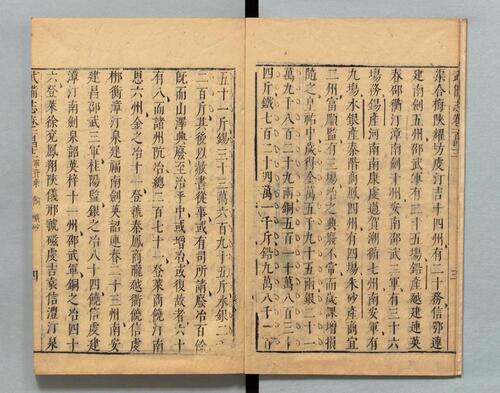 渠合梅陝耀坊虔汀吉十四州有二十務信鄂連
建南劍五州邵武軍有三十五場鉛產越建連英
春邵衢汀漳南劍十州南安邵武二軍有三十六
場務錫產河南南康虔道賀潮循七州南安軍有
九場水銀產秦階商鳳四州有四場朱砂產商宜
二州富順監有三場冶之興廢不常而歲課增損
隨之皇祐中歲得金萬五千九十五兩銀二十一
萬九千八百二十九兩銅五百一十萬八百三十
四斤鐵七百二十四萬一千斤鉛九萬八千一百
五十一斤錫三十三萬六百九十五斤水銀二千
二百斤其後以赦書從事或有司所請廢冶百餘
既而山澤興廢至治平中或增冶或復故者六十
有八而諸州阬冶總二百七十一登萊商饒汀南
恩六州金之冶十一登虢秦鳳商隴越衢饒信虔
郴衡漳汀泉建福南劍英韶連春二十三州南安
建昌邵武三軍桂陽監銀之冶八十四饒信虔建
漳汀南劍泉韶英梓十一州邵武軍銅之冶四十
六登萊徐兗鳳翔陝儀邢虢磁虔吉袁信澧汀泉
武備志卷 軍資乘 餉 礦砂 四